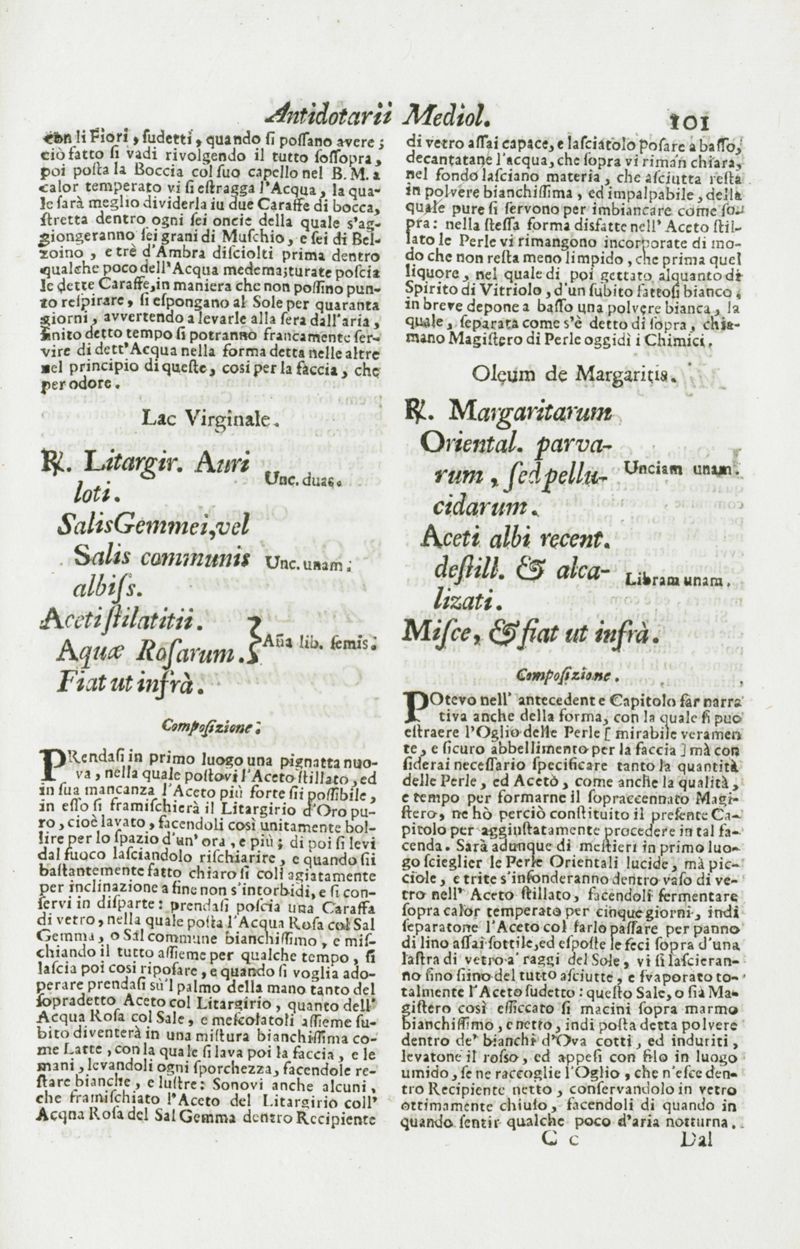 Antidotarii Mediol. 101
con li Fiori, ſudetti, quando ſi poſſano avere;
ciò fatto ſi vadi rivolgendo il tutto ſoſſopra,
poi poſta la Boccia col ſuo capello nel B. M. a
calor temperato vi ſi eſtragga l'Acqua, la qua-
le ſarà meglio dividerla iu due Caraffe di bocca,
ſtretta dentro ogni ſei oncie della quale s'ag-
giongeranno ſei grani di Muſchio, e ſei di Bel-
zoino, e trè d'Ambra diſciolti prima dentro
qualche poco dell'Acqua medema; turate poſcia
le dette Caraffe, in maniera che non poſſino pun-
to reſpirare, ſi eſpongano al Sole per quaranta
giorni, avvertendo a levarle alla ſera dall'aria,
finito detto tempo ſi potranno francamente ſer-
vire di dett'Acqua nella forma detta nelle altre
nel principio di queſte, così per la faccia, che
per odore.
Lac Virginale.
℞. Litargir. Auri
loti. Unc. duas.
Salis Gemmei, vel
Salis communis Unc. unam.
albiſs.
Aceti ſtilatitii.
Aquæ Roſarum. Aña lib. ſemis.
Fiat ut infrà.
Compoſizione.
PRendaſi in primo luogo una pignatta nuo-
va, nella quale poſtovi l'Aceto ſtillato, ed
in ſua mancanza l'Aceto più forte ſii poſſibile,
in eſſo ſi framiſchierà il Litargirio d'Oro pu-
ro, cioè lavato, facendoli così unitamente bol-
lire per lo ſpazio d'un'ora, e più; di poi ſi levi
dal fuoco laſciandolo riſchiarire, e quando ſii
baſtantemente fatto chiaro ſi coli agiatamente
per inclinazione a fine non s'intorbidi, e ſi con-
ſervi in diſparte: prendaſi poſcia una Caraffa
di vetro, nella quale poſta l'Acqua Roſa col Sal
Gemma, o Sal commune bianchiſſimo, e miſ-
chiando il tutto aſſieme per qualche tempo, ſi
laſcia poi così ripoſare, e quando ſi voglia ado-
perare prendaſi sù'l palmo della mano tanto del
ſopradetto Aceto col Litargirio, quanto dell'
Acqua Roſa col Sale, e meſcolatoli aſſieme ſu-
bito diventerà in una miſtura bianchiſſima co-
me Latte, con la quale ſi lava poi la faccia, e le
mani, levandoli ogni ſporchezza, facendole re-
ſtare bianche, e luſtre: Sonovi anche alcuni,
che framiſchiato l'Aceto del Litargirio coll'
Acqna Roſa del Sal Gemma dentro Recipiente
di vetro aſſai capace, e laſciatolo poſare a baſſo,
decantatane l'acqua, che ſopra vi riman chiara,
nel fondo laſciano materia, che aſciutta reſta
in polvere bianchiſſima, ed impalpabile, della
quale pure ſi ſervono per imbiancare come ſo-
pra: nella ſteſſa forma disfatte nell' Aceto ſtil-
lato le Perle vi rimangono incorporate di mo-
do che non reſta meno limpido, che prima quel
liquore, nel quale di poi gettato alquanto di
Spirito di Vitriolo, d'un ſubito fattoſi bianco,
in breve depone a baſſo una polvere bianca, la
quale, ſeparata come s'è detto di ſopra, chia-
mano Magiſtero di Perle oggidì i Chimici.
Oleum de Margaritis.
℞. Margaritarum
Oriental. parva-
rum, ſed pellu- Unciam unam.
cidarum.
Aceti albi recent.
deſtill. & alca- Libram unam.
lizati.
Miſce, & fiat ut infrà.
Compoſizione.
POtevo nell' antecedente Capitolo far narra
tiva anche della forma, con la quale ſi può
eſtraere l'Oglio delle Perle [ mirabile veramen
te, e ſicuro abbellimento per la faccia ] mà con
ſiderai neceſſario ſpecificare tanto la quantità
delle Perle, ed Acetò, come anche la qualità,
e tempo per formarne il ſopraccennato Magi-
ſtero, ne hò perciò conſtituito il preſente Ca-
pitolo per aggiuſtatamente procedere in tal fa-
cenda. Sarà adunque di meſtieri in primo luo-
go ſcieglier le Perle Orientali lucide, mà pic-
ciole, e trite s'infonderanno dentro vaſo di ve-
tro nell' Aceto ſtillato, facendoli fermentare
ſopra calor temperato per cinque giorni, indi
ſeparatone l'Aceto col farlo paſſare per panno
di lino aſſai ſottile, ed eſpoſte le feci ſopra d'una
laſtra di vetro a' raggi del Sole, vi ſi laſcieran-
no ſino ſiino del tutto aſciutte, e ſvaporato to-
talmente l'Aceto ſudetto: queſto Sale, o ſià Ma-
giſtero così eſſiccato ſi macini ſopra marmo
bianchiſſimo, e netto, indi poſta detta polvere
dentro de' bianchi d'Ova cotti, ed induriti,
levatone il roſſo, ed appeſi con filo in luogo
umido, ſe ne raccoglie l'Oglio, che n'eſce den-
tro Recipiente netto, conſervandolo in vetro
ottimamente chiuſo, facendoli di quando in
quando ſentir qualche poco d'aria notturna.
C c Dal